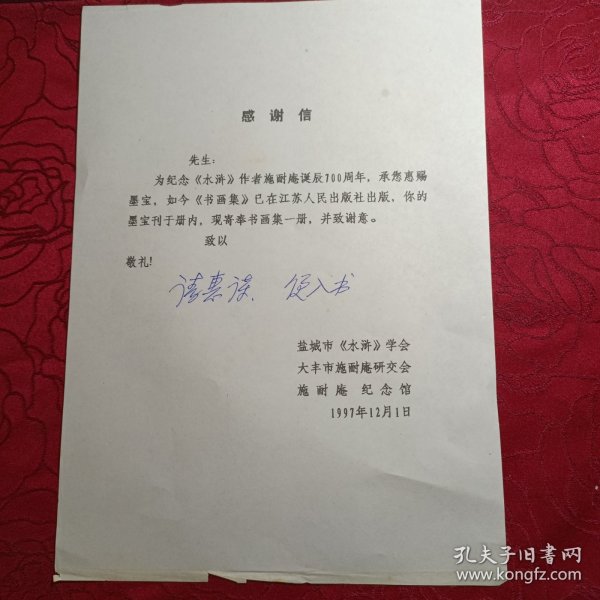 感谢信
先生：
为纪念《水浒》作者施耐庵诞辰700周年，承您惠赐
墨宝，如今《书画集》已在江苏人民出版社出版，你的
墨宝刊于册内，现寄奉书画集一册，并致谢意。
致以
敬礼!
请惠误、便入书
盐城市《水浒》学会
大丰市施耐庵研交会
施耐庵 纪念馆
1997年12月1日
孔夫子旧书网
www.kongfz.com